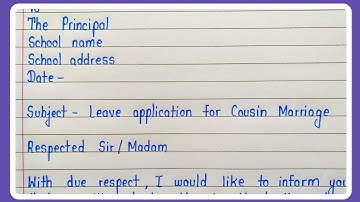 To
The Principal
School name
School address
Date -
Subject - Leave application for Cousin Marriage
Respected Sir / Madam
With due respect, I would like to inform you